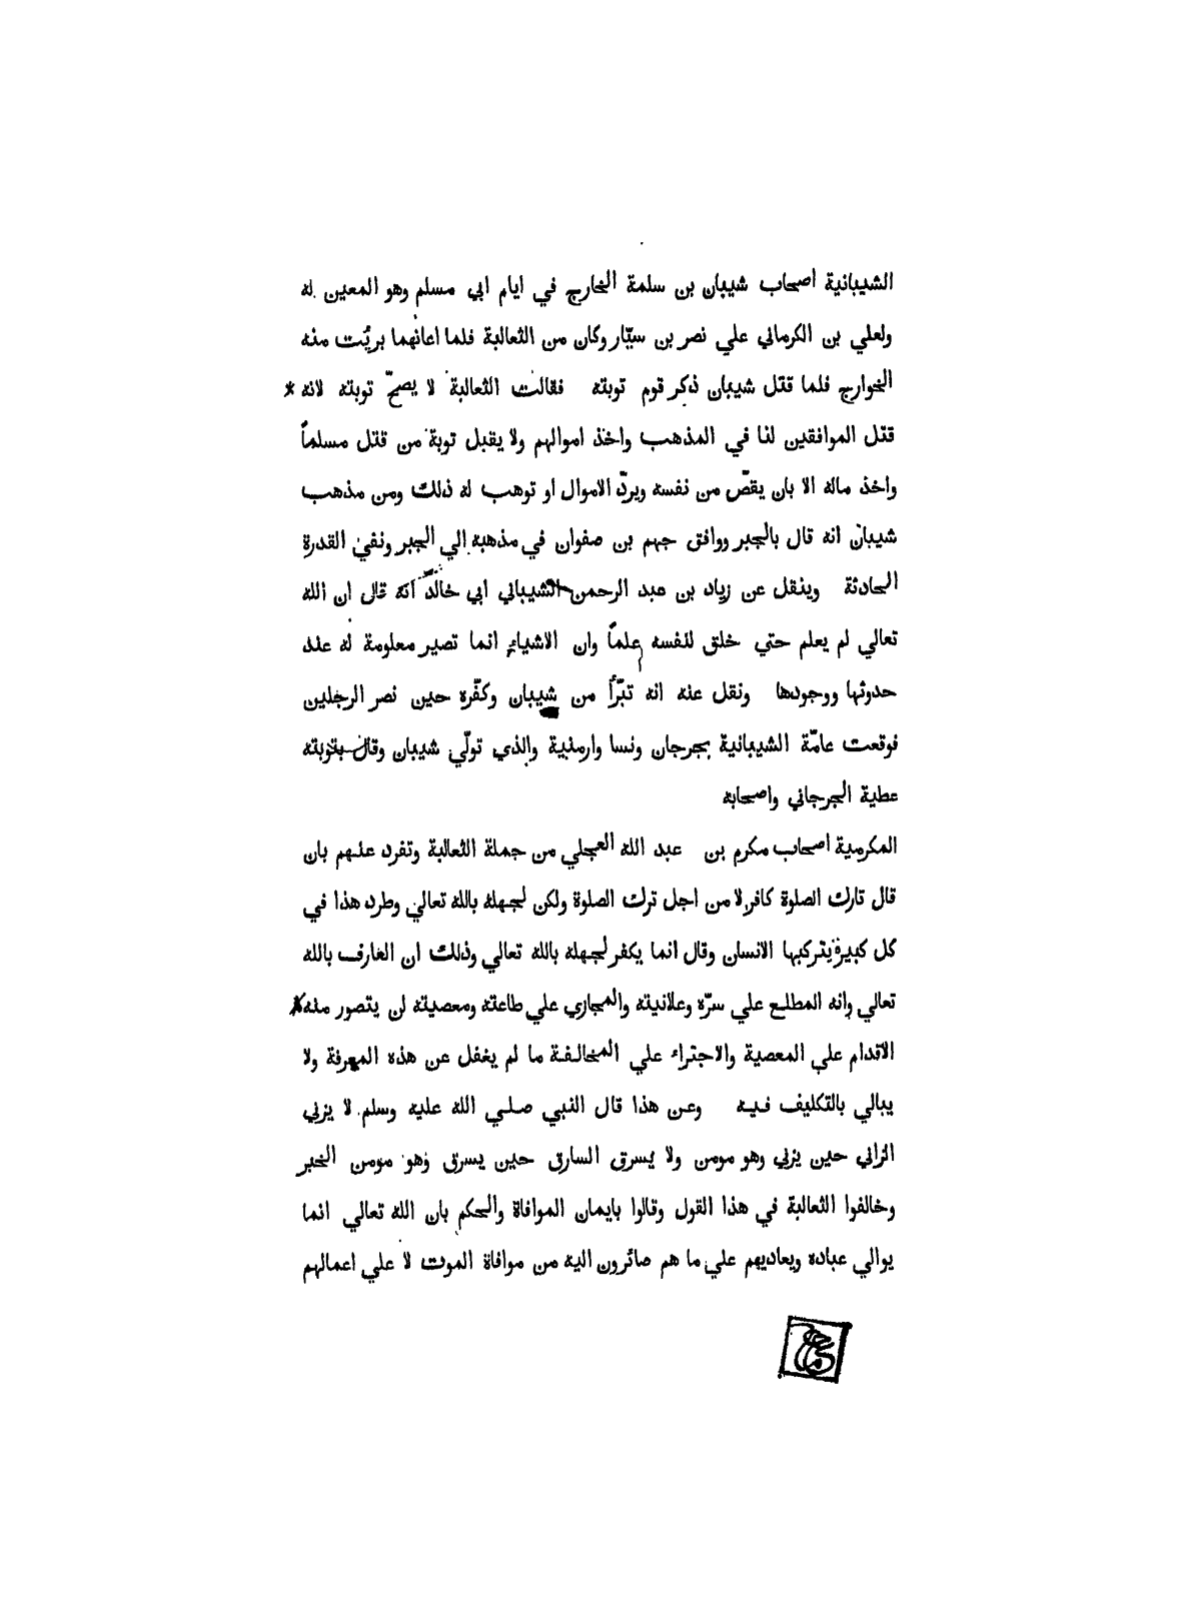 الشيبانية اصحاب شيبان بن سلمة الخارج في ايام ابي مسلم وهو المعين له
ولعلي بن الكرماني علي نصر بن سيّار وكان من الثعالبة فلما اعانهما بريُت منه
الخوارج فلما قتل شيبان ذكر قوم توبته فقالت الثعالبة لا يصحّ توبته لانه *
قتل الموافقين لنا في المذهب واخذ اموالهم ولا يقبل توبة من قتل مسلماً
واخذ ماله الا بان يقصّ من نفسه ويردّ الاموال او توهب له ذلك ومن مذهب
شيبان انه قال بالجبر ووافق جهم بن صفوان في مذهبه الي الجبر ونفي القدرة
الحادثة وينقل عن زياد بن عبد الرحمن الشيباني ابي خالد انه قال ان الله
تعالي لم يعلم حتي خلق لنفسه علماً وان الاشياء انما تصير معلومة له عند
حدوثها ووجودها ونقل عنه انه تبّرأ من شيبان وكفّره حين نصر الرجلين
فوقعت عامّة الشيبانية بجرجان ونسا وارمنية والذي تولّي شيبان وقال بتوبته
عطية الجرجاني واصحابه
المكرمية اصحاب مكرم بن عبد الله العجلي من جملة الثعالبة وتفرد عنهم بان
قال تارك الصلوة كافر لا من اجل ترك الصلوة ولكن لجهله بالله تعالي وطرد هذا في
كل كبيرة يتركبها الانسان وقال انما يكفر لجهله بالله تعالي وذلك ان العارف بالله
تعالي وانه المطلع علي سرّه وعلانيته والمجازي علي طاعته ومعصيته لن يتصور منه *
الاقدام علي المعصية والاجتراء علي المخالفة ما لم يغفل عن هذه المعرفة ولا
يبالي بالتكليف فيه وعن هذا قال النبي صلي الله عليه وسلم لا يزني
الزاني حين يزني وهو مومن ولا يسرق السارق حين يسرق وهو مومن الخبر
وخالفوا الثعالبة في هذا القول وقالوا بايمان الموافاة والحكم بان الله تعالي انما
يوالي عباده ويعاديهم علي ما هم صائرون اليه من موافاة الموت لا علي اعمالهم